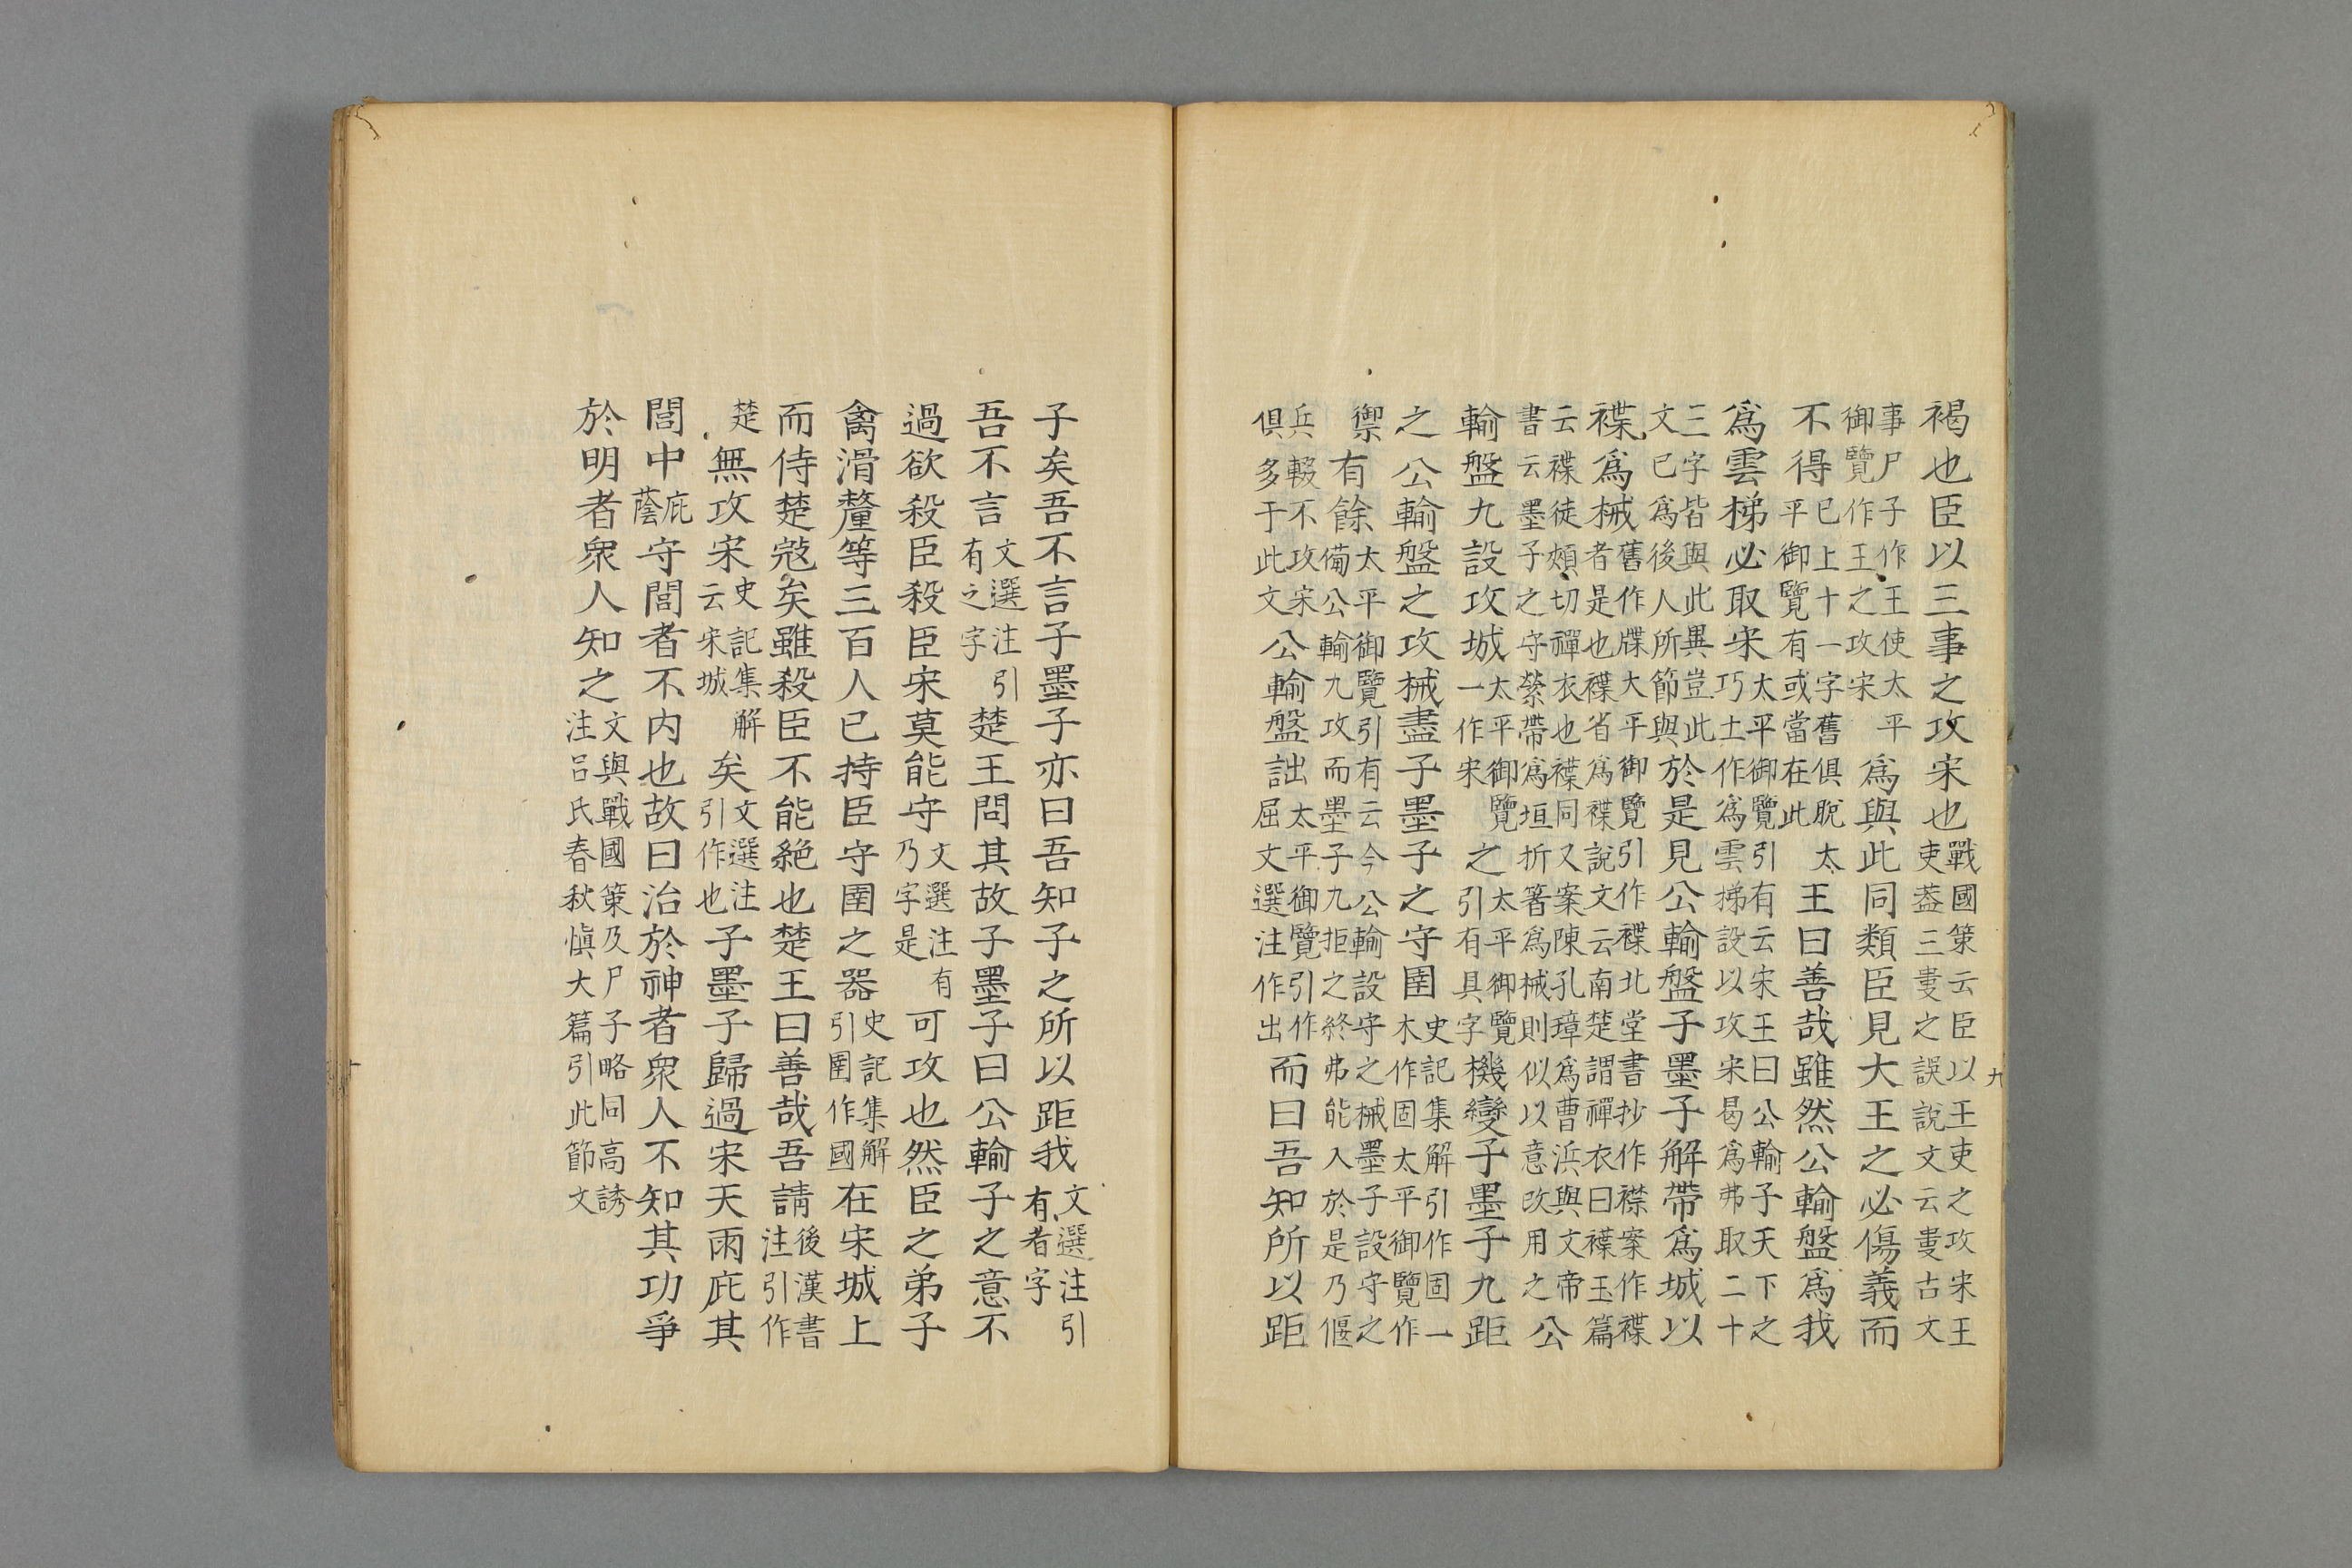 褐也臣以三事之攻宋也戰國策云臣以王吏之攻宋王吏蓋三叓之誤說文云叓古文
事尸子作王使太平御覽作王之攻宋爲與此同類臣見大王之必傷義而
不得已上十一字舊俱脫太平御覽有或當在此王曰善哉雖然公輸盤爲我
爲雲梯必取宋太平御覽引有云宋王曰公輸子天下之巧士作爲雲梯設以攻宋曷爲弗取二十
三字皆與此異豈此文已爲後人所節與於是見公輸盤子墨子解帶爲城以
褋爲械舊作牒大平御覽引作褋北堂書抄作襟案作褋者是也褋省爲褋說文云南楚謂禪衣曰褋玉篇
云褋徒頰切禪衣也褋同又案陳孔璋爲曹浜與文帝書云墨子之守縈帶爲垣折箸爲械則似以意改用之公
輸盤九設攻城太平御覽一作宋之太平御覽引有具字機變子墨子九距
之公輸盤之攻械盡子墨子之守圉史記集解引作固一木作固太平御覽作
禦有餘太平御覽引有云今公輸設守之械墨子設守之備公輸九攻而墨子九拒之終弗能入於是乃偃
兵輟不攻宋俱多于此文公輸盤詘太平御覽引作屈文選注作出而曰吾知所以距
九
子矣吾不言子墨子亦曰吾知子之所以距我文選注引有者字
吾不言文選注引有之字楚王問其故子墨子曰公輸子之意不
過欲殺臣殺臣宋莫能守文選注有乃字是可攻也然臣之弟子
禽滑釐等三百人已持臣守圉之器史記集解引圉作國在宋城上
而侍楚寇矣雖殺臣不能絕也楚王曰善哉吾請後漢書注引作
楚無攻宋史記集解云宋城矣文選注引作也子墨子歸過宋天雨庇其
閭中庇蔭守閭者不內也故曰治於神者衆人不知其功爭
於明者衆人知之文與戰國策及尸子略同高誘注呂氏春秋愼大篇引此節文